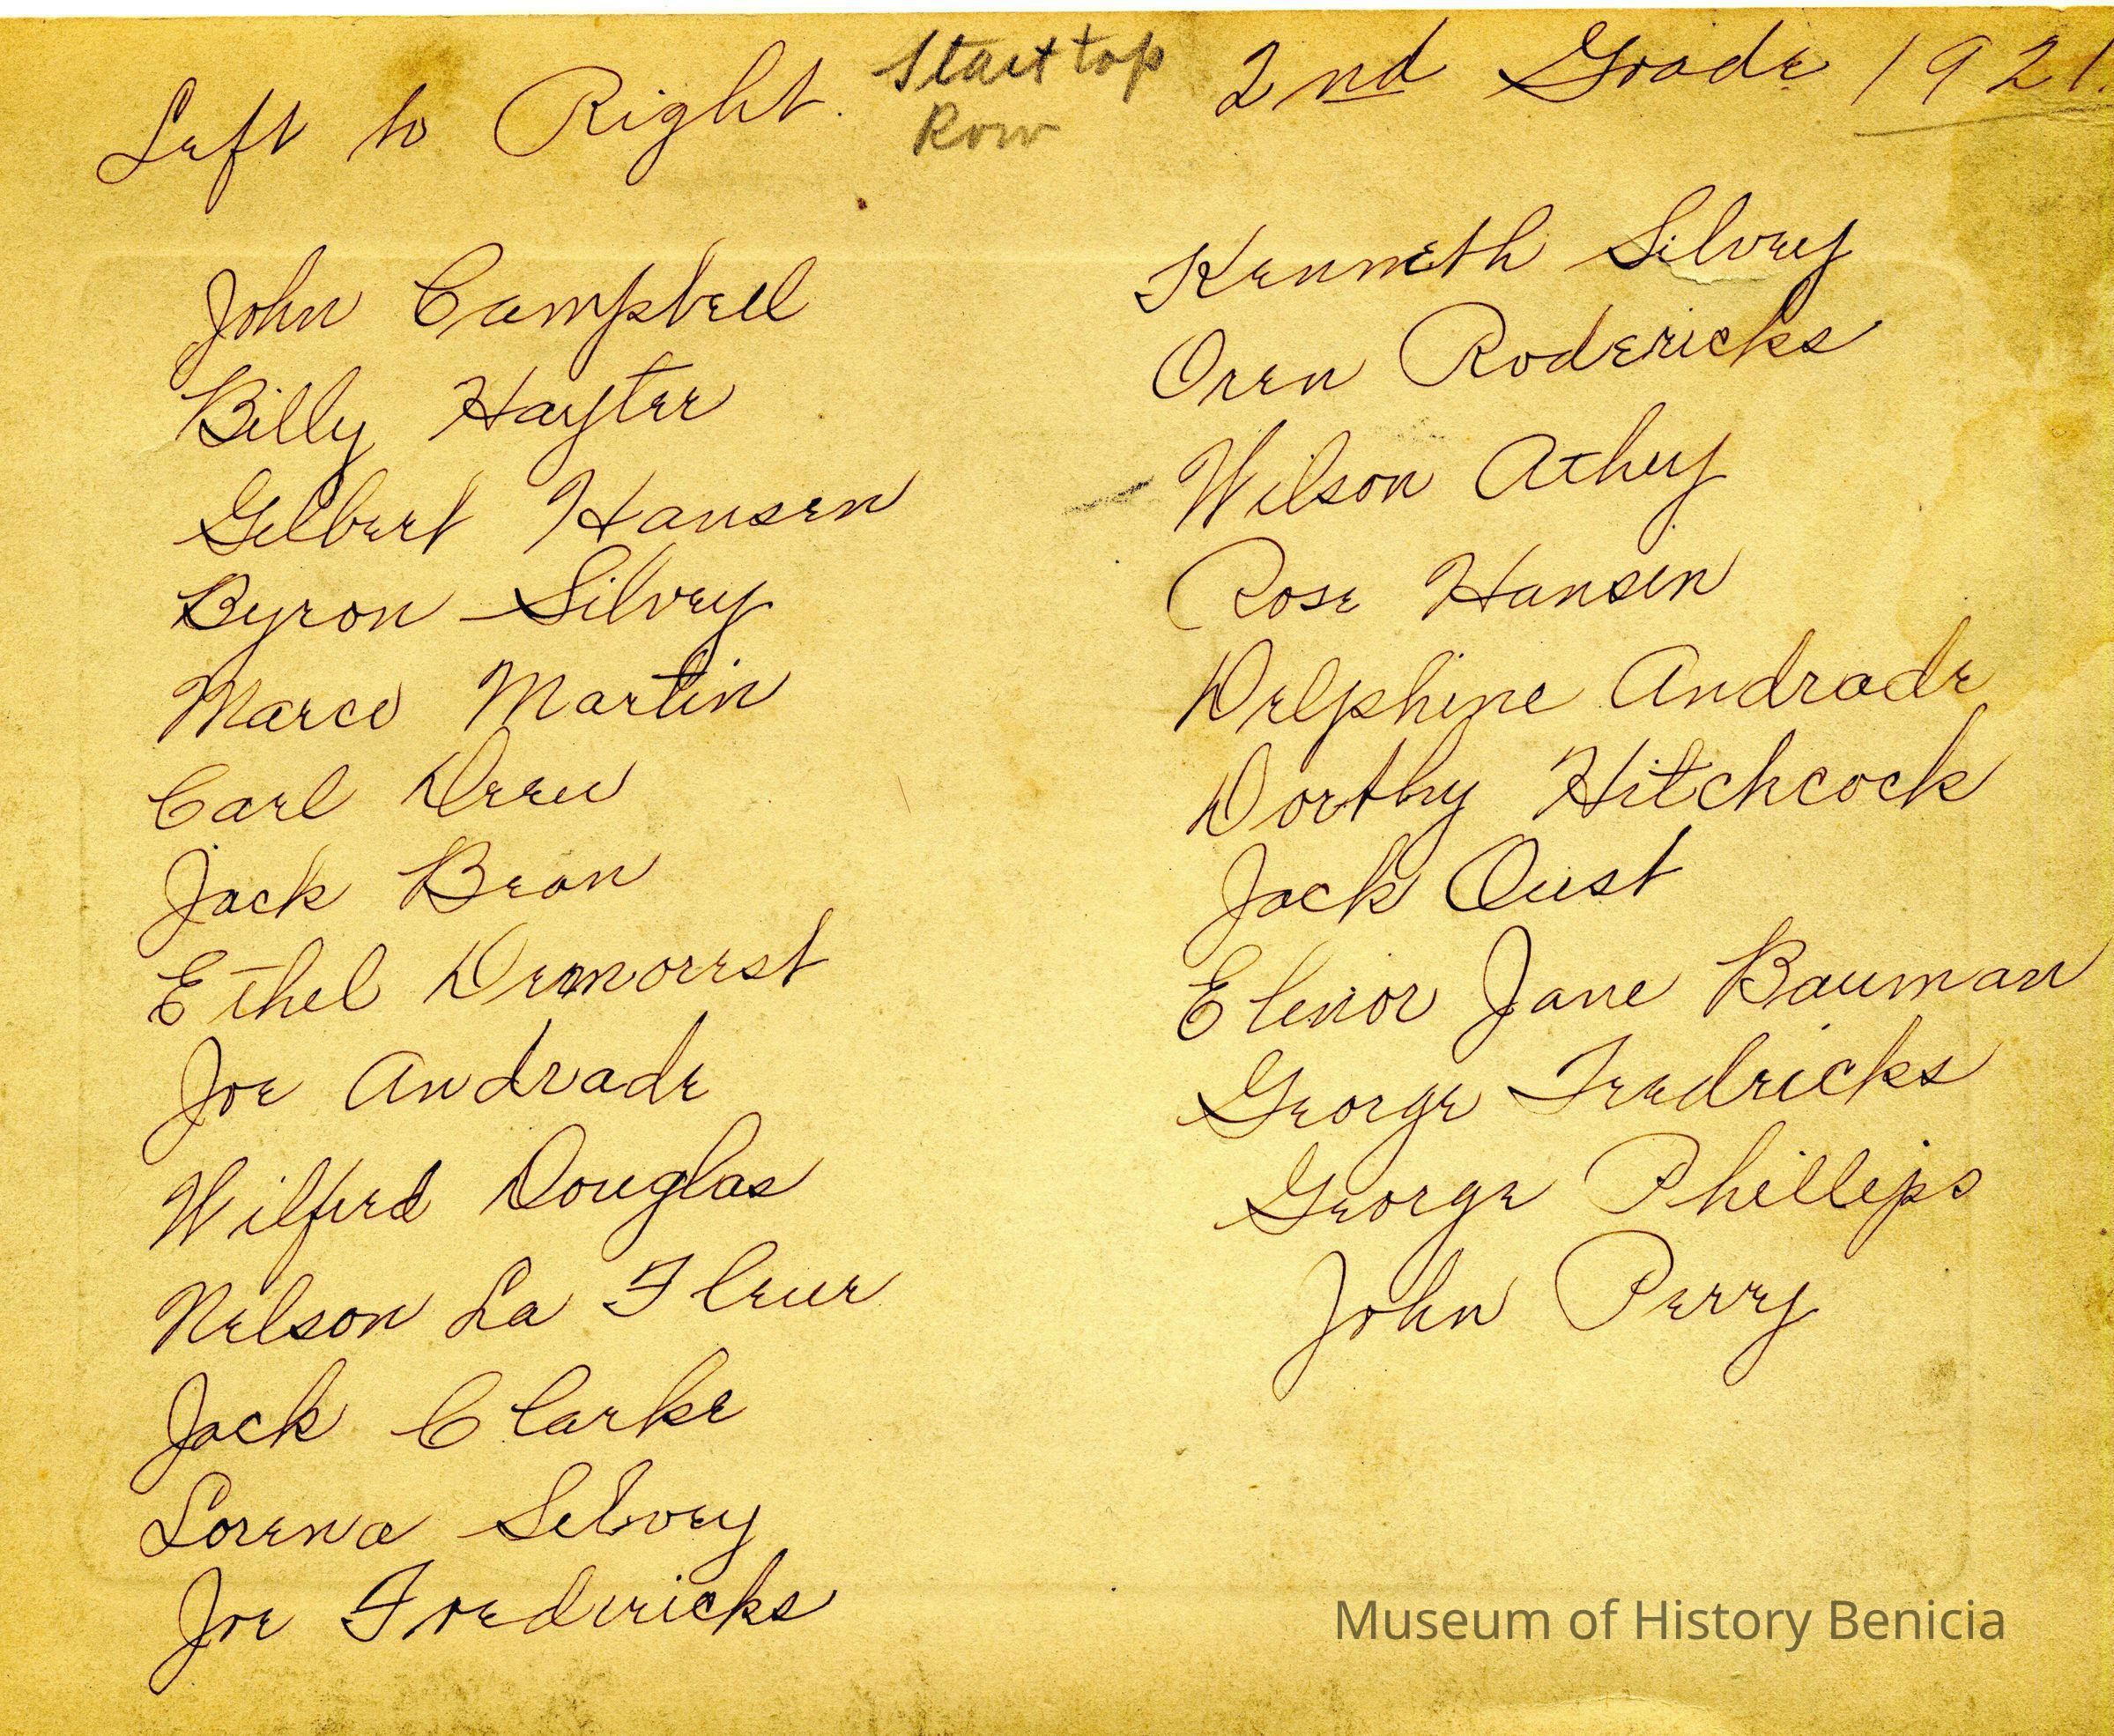 Left to Right. Start top 2nd Grade 1921.
Row
John Campbell
Billy Hayter
Gilbert Hansen
Byron Silvey
Marco Martin
Carl Drew
Jack Bean
Ethel Demorest
Joe Andrade
Wilferd Douglas
Nelson La Fleur
Jack Clarke
Lorena Silvey
Joe Fredericks
Kenneth Silvey
Oren Rodericks
Wilson Athey
Rose Hansen
Delphine Andrade
Dorthy Hitchcock
Jack Oust
Elenor Jane Bauman
George Fredricks
George Phillips
John Perry
Museum of History Benicia